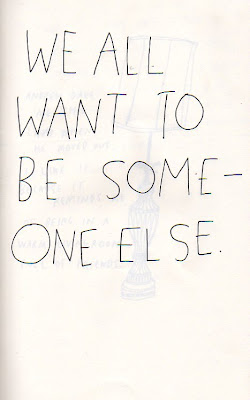 WE ALL
WANT TO
BE SOME-
ONE ELSE.